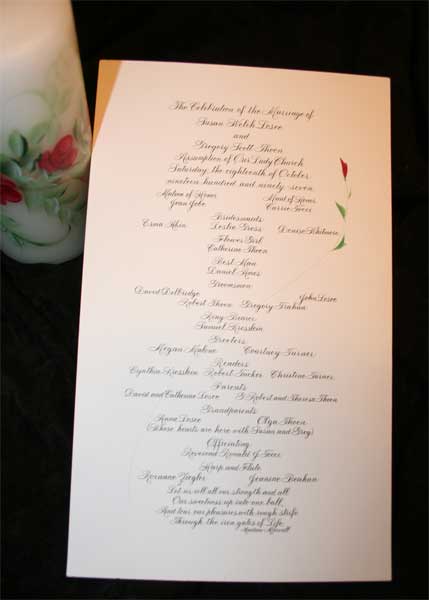 The Celebration of the Marriage of
Susan Welch Losee
and
Gregory Scott Theon
Assumption of Our Lady Church
Saturday, the eighteenth of October
nineteen hundred and ninety-seven
Matron of Honor Maid of Honor
Jean Yobe Carrie
Bridesmaids
Erma Leslie Gress Denise
Flower Girl
Catherine Theon
Best Man
Daniel
Groomsmen
David Delbridge John Losee
Robert Theon Gregory
Ring Bearer
Samuel
Greeters
Megan Malone Courtney Turner
Readers
Cynthia Robert Tucker Christine Turner
Parents
David and Catherine Losee G Robert and Theresa Theon
Grandparents
Anna Losee Olga Theon
(Whose hearts are here with Susan and Greg)
Officiating
Reverend Ronald J
Harp and Flute
Roxanne Ziegler Jeanine
Let us roll all our strength and all
Our sweetness up into one ball,
And tear our pleasures with rough strife
Through the iron gates of Life.
Andrew Marvell